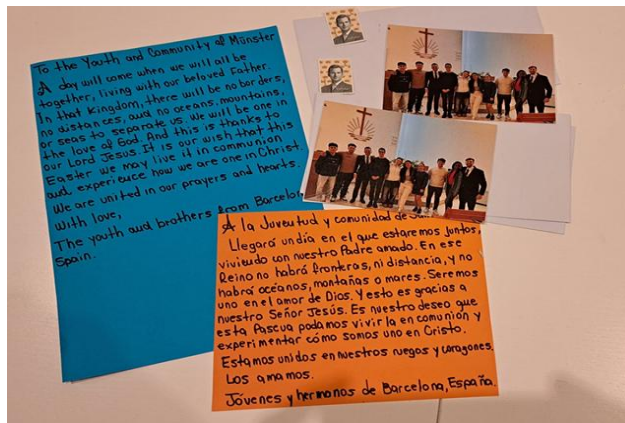 To the Youth and Community of Münster
A day will come when we will all be
together, living with our beloved Father.
In that Kingdom, there will be no borders,
no distances, and no oceans, mountains,
or seas to separate us. We will be one in
the love of God. And this is thanks to
our Lord Jesus. It is our wish that this
Easter we may live it in communion
and experience how we are one in Christ.
We are united in our prayers and hearts.
With love,
The youth and brothers from Barcelo
Spain.
A la Juventud y comunidad de
Llegará un día en el que estaremos juntos,
viviendo con nuestro Padre amado. En ese
Reino no habrá fronteras, ni distancia, y no
habrá océanos, montañas o mares. Seremos
uno en el amor de Dios. Y esto es gracias a
nuestro Señor Jesús. Es nuestro deseo que
esta Pascua podamos vivir la en comunión y
experimentar cómo somos uno en Cristo.
Estamos unidos en nuestros ruegos y corazones.
Los amamos.
Jóvenes y hermanos de Barcelona, España.